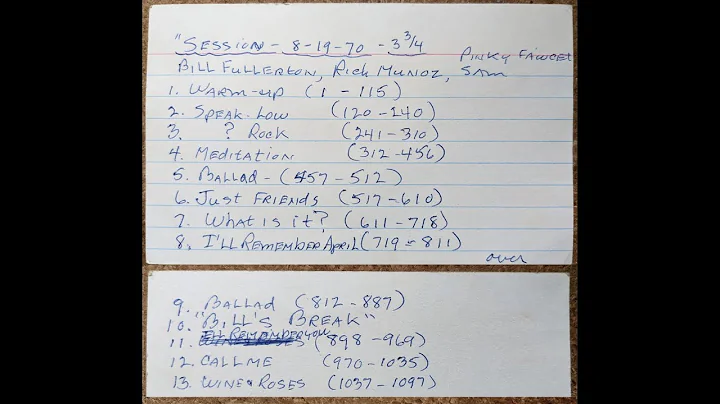 "Session - 8-19-70 - 3 3/4
Pinky Fawcet
Bill Fullerton, Rick Munoz, Sam
1. Warm-up (1 - 115)
2. Speak Low (120 - 240)
3. ? Rock (241 - 310)
4. Meditation (312 - 456)
5. Ballad - (457 - 512)
6. Just Friends (517 - 610)
7. What is it? (611 - 718)
8. I'll Remember April (719 - 811)
over
9. Ballad (812 - 887)
10. "Bill's Break"
I'll Remember You
11. (898 - 969)
12. Call Me (970 - 1035)
13. Wine & Roses (1037 - 1097)